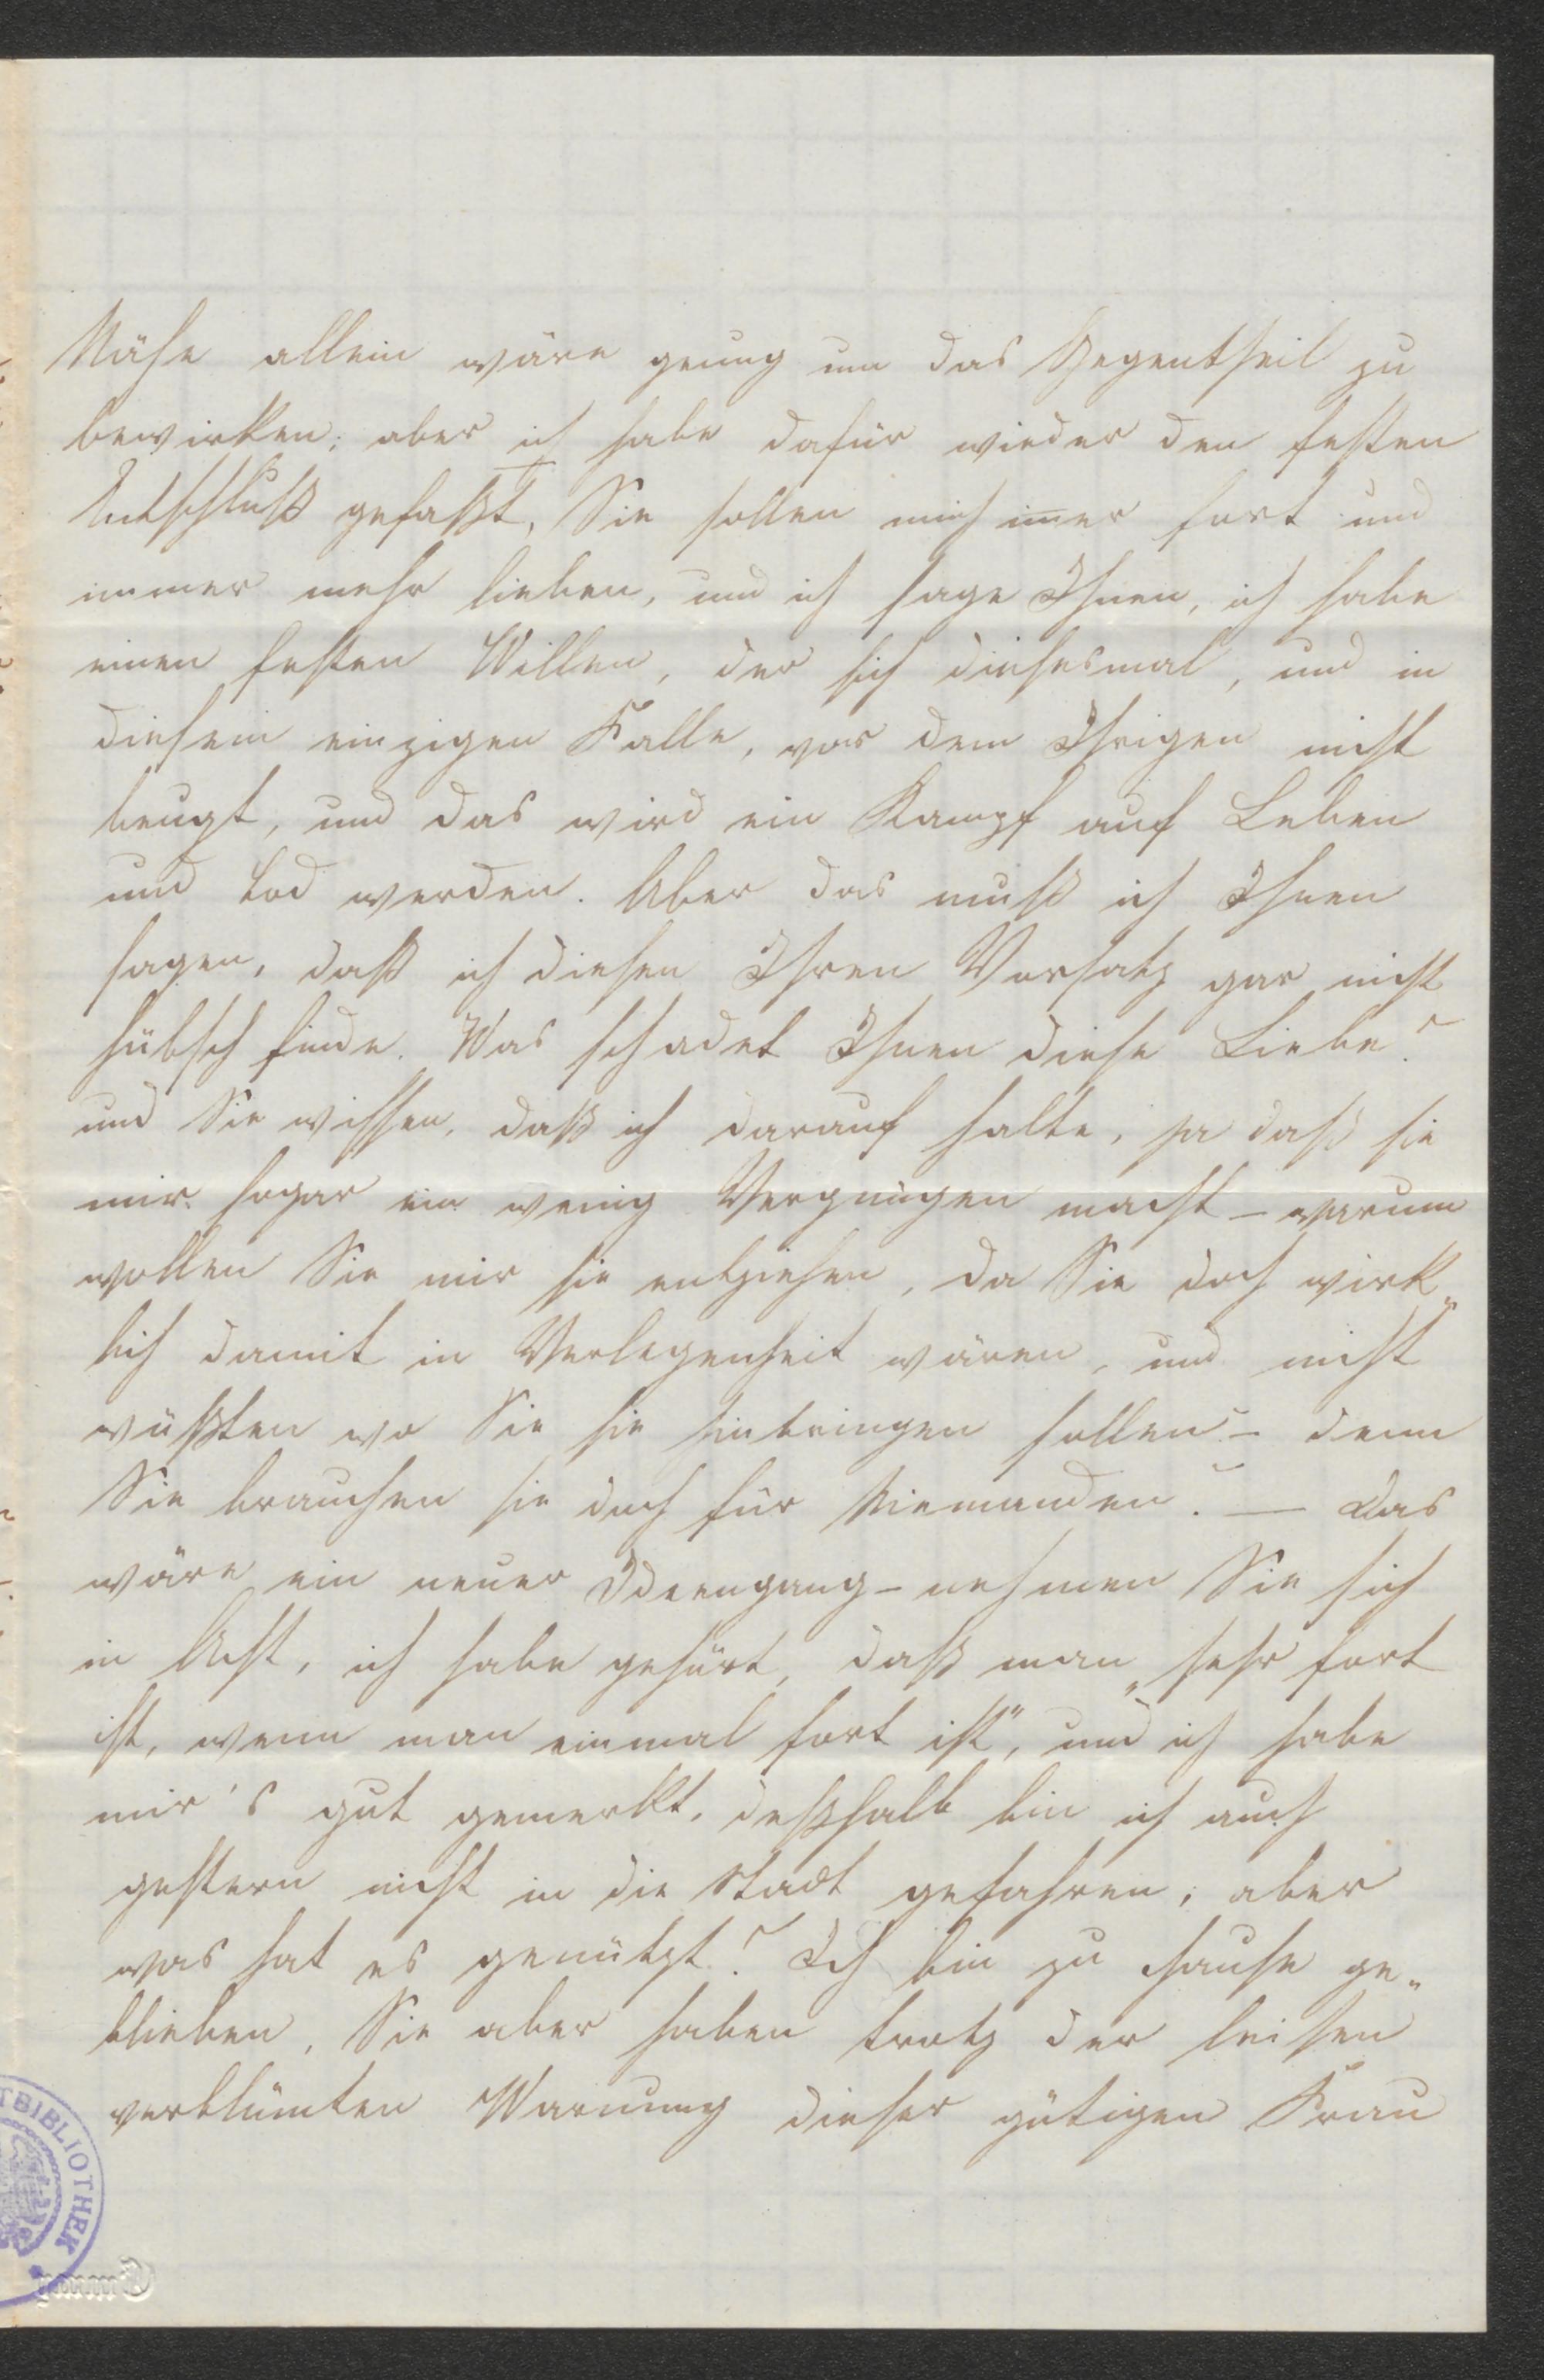 Nähe allein wäre genug um das Gegentheil zu
bewirken; aber ich habe dafür wieder den festen
Entschluß gefaßt, Sie sollen mich im̄er fort und
immer mehr lieben, und ich sage Ihnen, ich habe
einen festen Willen, der sich diesesmal, und in
diesem einzigen Falle, vor dem Ihrigen nicht
beugt, und das wird ein Kampf auf Leben
und Tod werden. Aber das muß ich Ihnen
sagen, daß ich diesen Ihren Vorsatz gar nicht
hübsch finde. Was schadet Ihnen diese Liebe?
und Sie wissen, daß ich darauf halte, ja daß sie
mir sogar ein wenig Vergnügen macht – warum
wollen Sie mir sie entziehen, da Sie doch wirk„
lich damit in Verlegenheit wären, und nicht
wüßten wo Sie sie hinbringen sollen? – denn
Sie brauchen sie doch für Niemanden? — Das
wäre ein neuer Ideengang – nehmen Sie sich
in Acht, ich habe gehört, daß man „sehr fort
ist, wenn man einmal fort ist“, und ich habe
mir's gut gemerkt, deßhalb bin ich auch
gestern nicht in die Stadt gefahren; aber
was hat es genützt? Ich bin zu Hause ge„
blieben, Sie aber haben trotz der leisen
verblümten Warnung dieser gütigen Frau
TBIBLIOTHEK